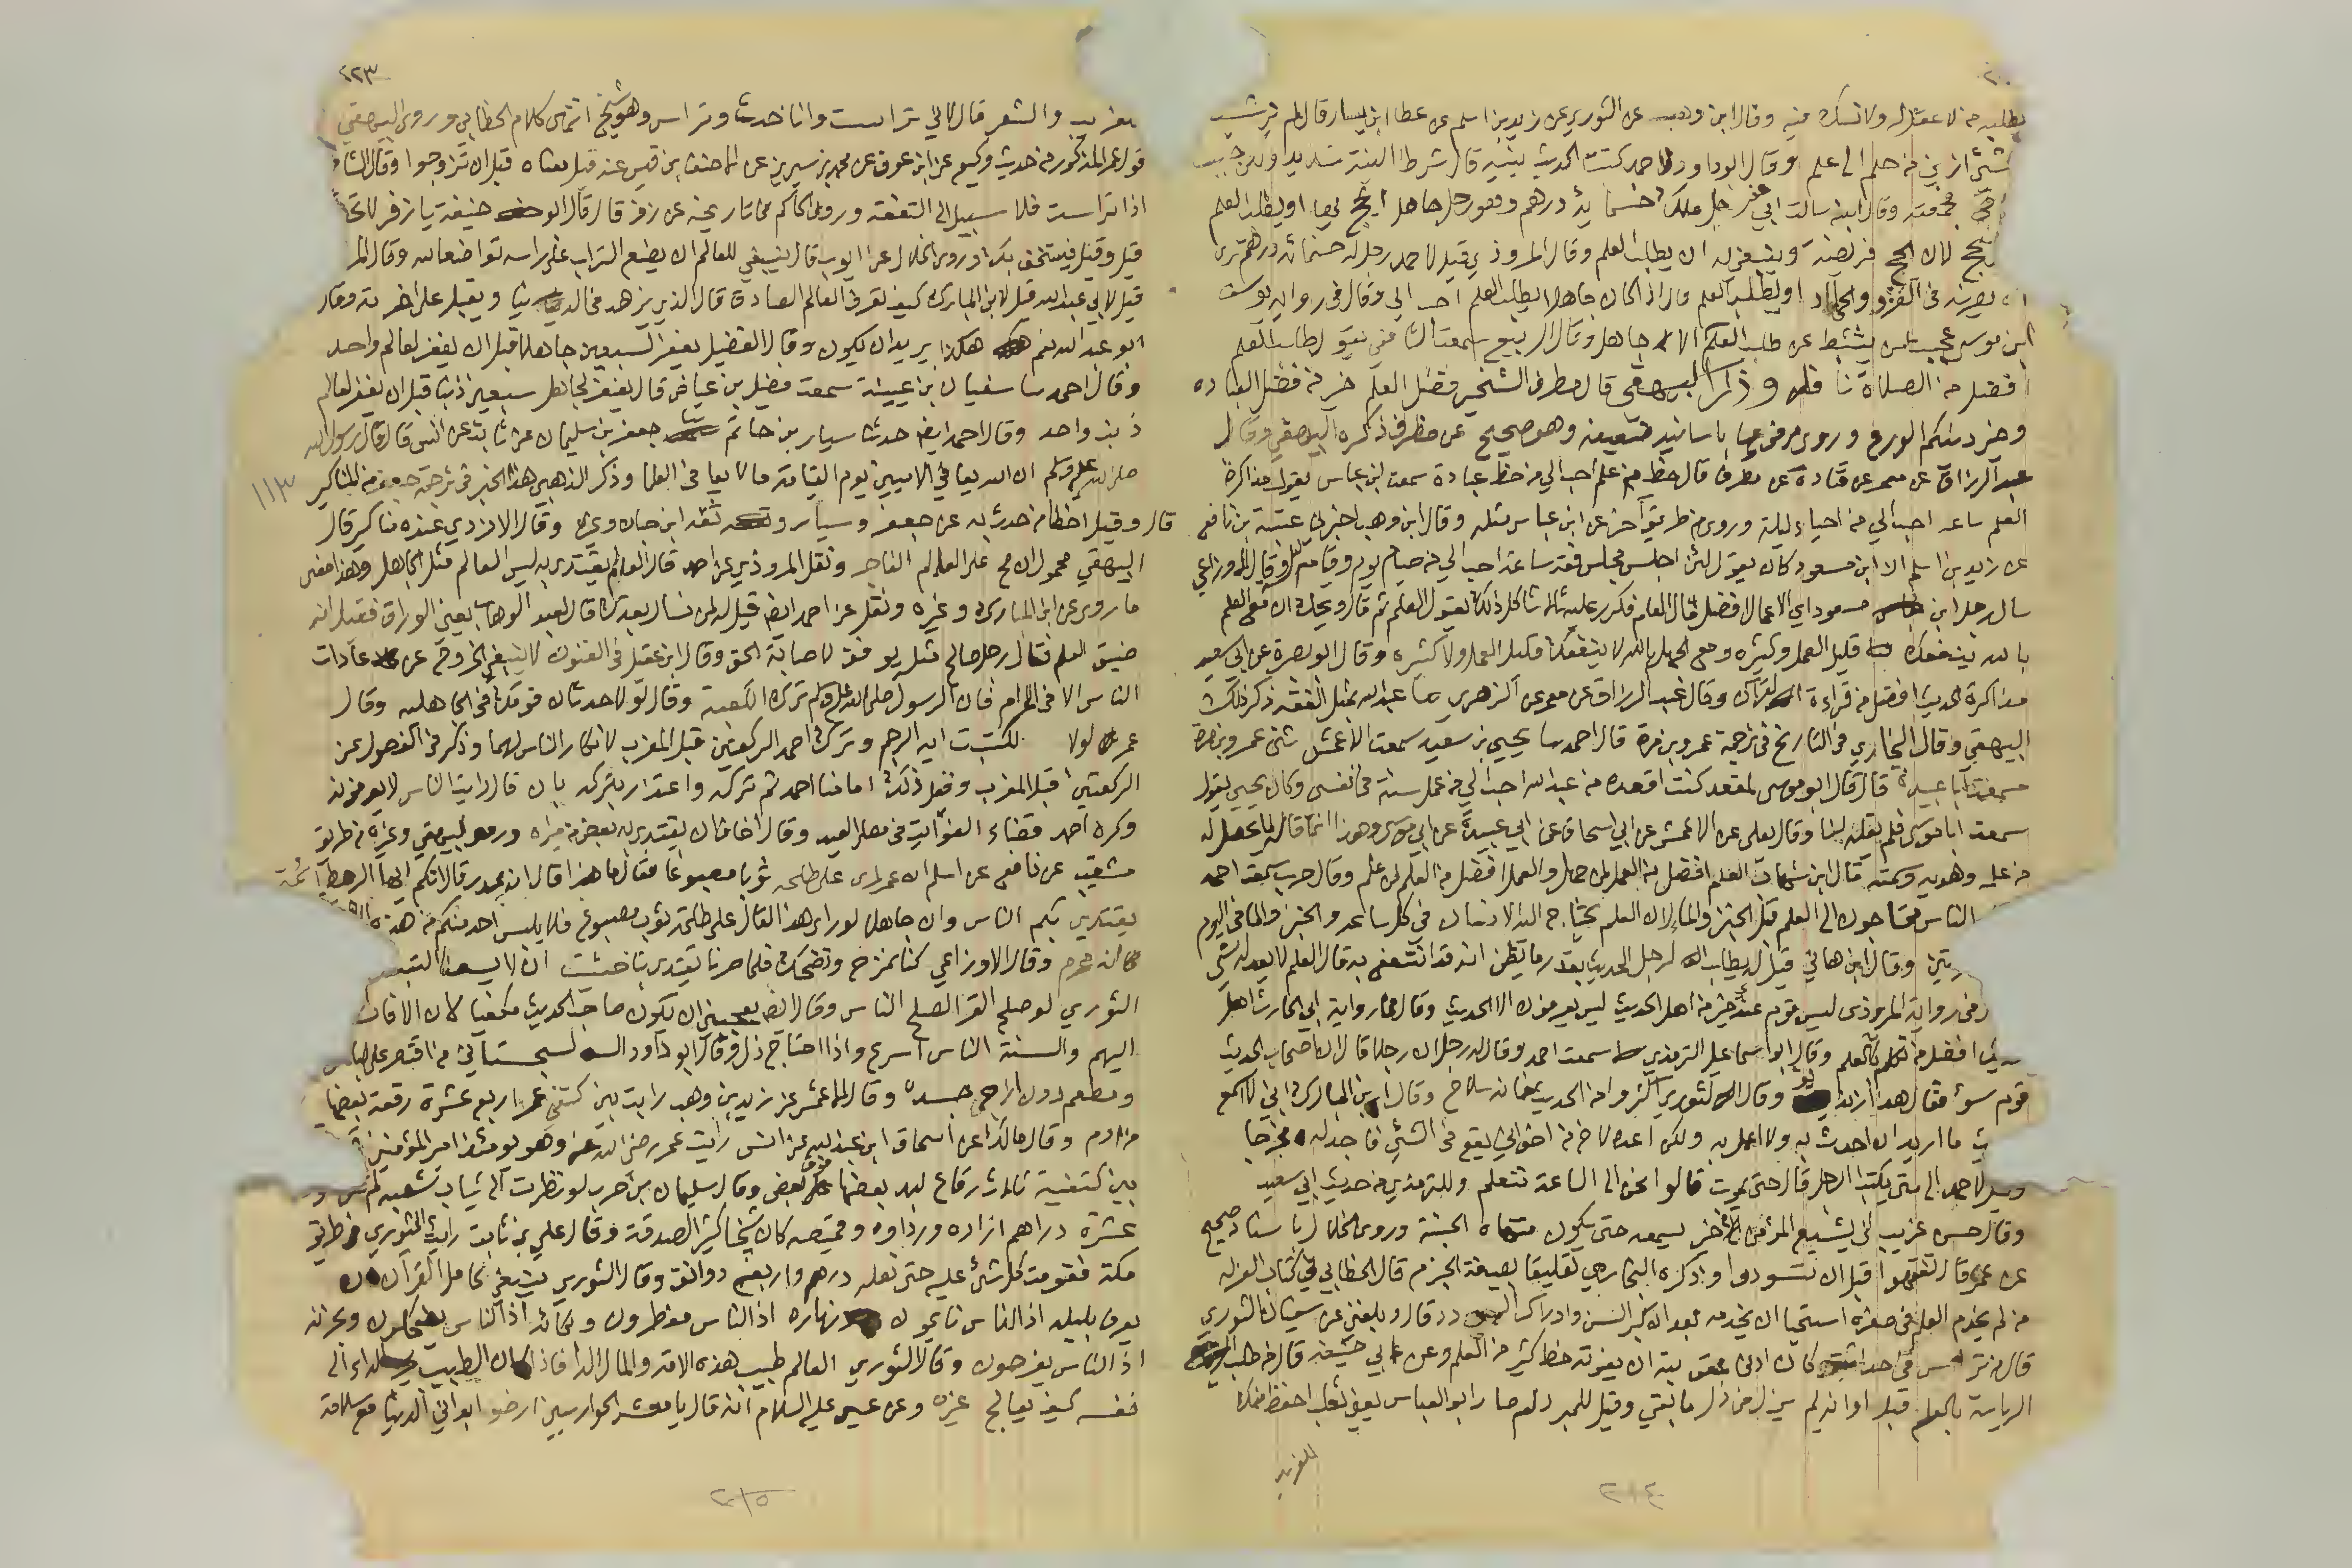 يطلبه من لا عقل له ولا نسك فيه وقال ابن وهب عن الثوري عن زيد بن اسلم عن عطا ابن يسار قال لم نر شيئا
شيئ ازين من حلم الى علم وقال ابو داود لاحمد كتبت الحديث بنية قال شرط النية شديد ولكن حبب
فجمعته وقال ابنه سالت ابي عن رجل ملك خمسمائة درهم وهو رجل جاهل ايحج بها او يطلب العلم
يحج لان الحج فريضة وينبغي له ان يطلب العلم وقال المروذي قيل لاحمد رجل له خمسمائة درهم ترى
ان يصرفه في الغزو والجهاد او يطلب العلم قال اذا كان جاهلا يطلب العلم احب الي وقال في رواية يوسف
ابن موسى عجب لمن يتثبط عن طلب العلم الا جاهل وقال الربيع سمعت الشافعي يقول طلب العلم
افضل من الصلاة نافلة وذكر البيهقي قال مطرف الشخير فضل العلم خير من فضل العبادة
وخير دينكم الورع وروي مرفوعا باسانيد ضعيفة وهو صحيح عن مطرف ذكره البيهقي وقال
عبد الرزاق عن معمر عن قتادة عن مطرف قال حظ من علم احب الي من حظ عبادة سمعت ابن عباس يقول مذاكرة
العلم ساعة احب الي من احياء ليلة وروي من طريق آخر عن ابن عباس مثله وقال ابن وهب اخبرني عتبة بن نافع
عن زيد بن اسلم ان ابن مسعود كان يقول لئن اجلس مجلس فقه ساعة احب الي من صيام يوم وقيام ليلة وقال الاوزاعي
سال رجل ابن مسعود اي الاعمال افضل قال العلم فكرر عليه ثلاثا كل ذلك يقول العلم ثم قال ويحك ان مع العلم
بالله ينفعك قليل العمل وكثيره ومع الجهل بالله لا ينفعك قليل العمل ولا كثيره وقال ابو نضرة عن ابي سعيد
مذاكرة الحديث افضل من قراءة القرآن وقال عبد الرزاق عن معمر عن الزهري ما عبد الله بمثل الفقه ذكر ذلك
البيهقي وقال البخاري في التاريخ في ترجمة عمرو بن مرة قال احمد ثنا يحيى بن سعيد سمعت الاعمش ثنى عمرو بن مرة
سمعت ابا عبيدة قال قال ابو موسى لمقعد كنت اقعده من عبد الله احب الي من عمل سنة في نفسي وكان يحيى يقول
سمعت ابا موسى فلم يقله لنا وقال يعلى عن الاعمش عن ابي اسحاق عن ابي عبيدة عن ابي موسى وهذا
قال ابن شهاب العلم افضل من العمل لمن جهل والعمل افضل من العلم لمن علم وقال حرب سمعت احمد
الناس محتاجون الى العلم قبل الخبز والماء لان العلم يحتاج اليه الانسان في كل ساعة والخبز والماء في اليوم
وقال ابن هاني قيل له يطلب الرجل الحديث بقدر ما يظن انه قد انتفع به قال العلم لا يعدله شي
وفي رواية المروذي ليس قوم عندي خير من اهل الحديث ليس يعرفون الا الحديث وقال في رواية ابي الحارث اهل
الحديث افضل من تكلم في العلم وقال ابو اسماعيل الترمذي سمعت احمد وقال له رجل ان رجلا قال ان اصحاب الحديث
قوم سوء فقال هذا زنديق وقال الثوري اكثروا من الحديث فانه سلاح وقال ابن المبارك اني لاسمع
ما اريد ان احدث به ولا اعمل به ولكن اعده لاخ من اخواني يقع في الشيئ فاجد له مخرجا
وقيل لاحمد الى متى يكتب الرجل قال حتى يموت قالوا نحن الى الساعة نتعلم وللترمذي من حديث ابي سعيد
وقال حسن غريب لن يشبع المؤمن من خير يسمعه حتى يكون منتهاه الجنة وروى الخلال باسناد صحيح
عن عمر قال تفقهوا قبل ان تسودوا وذكره البخاري تعليقا بصيغة الجزم قال الخطابي في كتاب العزلة
من لم يخدم العلم في صغره استحيا ان يخدمه بعد الكبر السن وادراك السؤدد قال وبلغني عن سفيان الثوري
قال من ترأس في حداثته كان ادنى عقوبته ان يفوته حظ كثير من العلم وعن ابي حنيفة قال من طلب
الرياسة بالعلم قبل اوانه لم يزل في ذل ما بقي وقيل للمبرد لم صار ابو العباس يعني ثعلب احفظ منك
للغريب
٢١٤
٢٢٣
للغريب والشعر قال لاني ترأست وانا حدث وترأس وهو شيخ انتهى كلام الخطابي وروى البيهقي
قول عمر المذكور من حديث وكيع عن ابن عوف عن محمد بن سيرين عن الاحنف بن قيس عنه قيل معناه قبل ان تزوجوا وقال الشافعي
اذا ترأست فلا سبيل الى التفقه وروى الحاكم في تاريخه عن زفر قال قال ابو حنيفة يا زفر لا
قيل وقيل فيستخف بك وروى الخلال عن ايوب قال ينبغي للعالم ان يضع التراب على راسه تواضعا لله وقال
قيل لابي عبد الله قيل لابن المبارك كيف تعرف العالم الصادق قال الذي يزهد في الدنيا ويقبل على اخرته وقال
ابو عبد الله نعم هكذا يريد ان يكون وقال الفضيل يغفر لسبعين جاهلا قبل ان يغفر لعالم واحد
وقال احمد ثنا سفيان بن عيينة سمعت فضيل بن عياض قال يغفر لجاهل سبعين ذنبا قبل ان يغفر لعالم
ذنب واحد وقال احمد ايضا حدثنا سيار بن حاتم ثنا جعفر بن سليمان عن ثابت عن انس قال قال رسول الله
صلى الله عليه وسلم ان الله يعافي الاميين يوم القيامة ما لا يعافي العلما وذكر الذهبي هذا الخبر في ترجمة جعفر من المناكير
١١٣
قال وقيل اخطا من حدث به عن جعفر وسيار وثقه ابن حبان وغيره وقال الازدي عنده مناكير قال
البيهقي محمول ان صح على العالم الفاجر ونقل المروذي عن احمد قال العالم يقتدى به ليس العالم مثل الجاهل وهذا معنى
ما روي عن ابن المبارك وغيره ونقل عن احمد ايضا قيل له لمن نسال بعدك قال لعبد الوهاب يعني الوراق فقيل انه
ضيق العلم فقال رجل صالح مثله يوفق لاصابة الحق وقال ابن عقيل في الفنون لا ينبغي الخروج عن عادات
الناس الا في الحرام فان الرسول صلى الله عليه وسلم ترك الكعبة وقال لولا حدثان قومك في الجاهلية وقال
عمر لولا لكتبت اية الرجم وترك احمد الركعتين قبل المغرب لانكار الناس لهما وذكر في الفصول عن
الركعتين قبل المغرب وفعل ذلك امامنا احمد ثم تركه واعتذر بتركه بان قال رايت الناس لا يعرفونه
وكره احمد قضاء الفوائت في مصلى العيد وقال اخاف ان يقتدي به بعض من يراه وروى البيهقي وغيره من طريق
شعيب عن نافع عن اسلم ان عمر راى على طلحة ثوبا مصبوغا فقال ما هذا قال انه بمدر قال انكم ايها الرهط ائمة
يقتدي بكم الناس وان جاهلا لو راى هذا لقال على طلحة ثوب مصبوغ فلا يلبس احد منكم من هذه
وقال الاوزاعي كنا نمزح ونضحك فلما صرنا يقتدى بنا خشيت ان لا يسعنا التبسم
الثوري لو صلح القرا لصلح الناس وقال ايضا يعجبني ان يكون صاحب الحديث مكفيا لان الافات
اليهم والسنة الناس اسرع واذا احتاج ذل وقال ابو داود السجستاني من اقتصر على لباس
ومطعم دون اراح جسده وقال الاعمش عن زيد بن وهب رايت بين كتفي عمر اربع عشرة رقعة بعضها
من ادم وقال مالك عن اسحاق ابن عبد الله عن انس رايت عمر رضي الله عنه وهو يومئذ امير المؤمنين
بين كتفيه ثلاث رقاع لبد بعضها فوق بعض وقال سليمان بن حرب لو نظرت الى ثياب شعبه لم
عشرة دراهم ازاره ورداوه وقميصه كان شيخا كثير الصدقة وقال علي بن ثابت رايت الثوري في طريق
مكة فقومت كل شئ عليه حتى نعله درهم واربعة دوانق وقال الثوري ينبغي لحامل القرآن ان
يعرف بليله اذا الناس نايمون ونهاره اذ الناس مفطرون وبكائه اذا الناس يضحكون وبحزنه
اذ الناس يفرحون وقال الثوري العالم طبيب هذه الامة والمال الدا فاذا كان الطبيب يجر الداء الى
نفسه كيف يعالج غيره وعن عيسى عليه السلام انه قال يا معشر الحواريين ارضوا بدانئ الدنيا مع سلامة
٢١٥